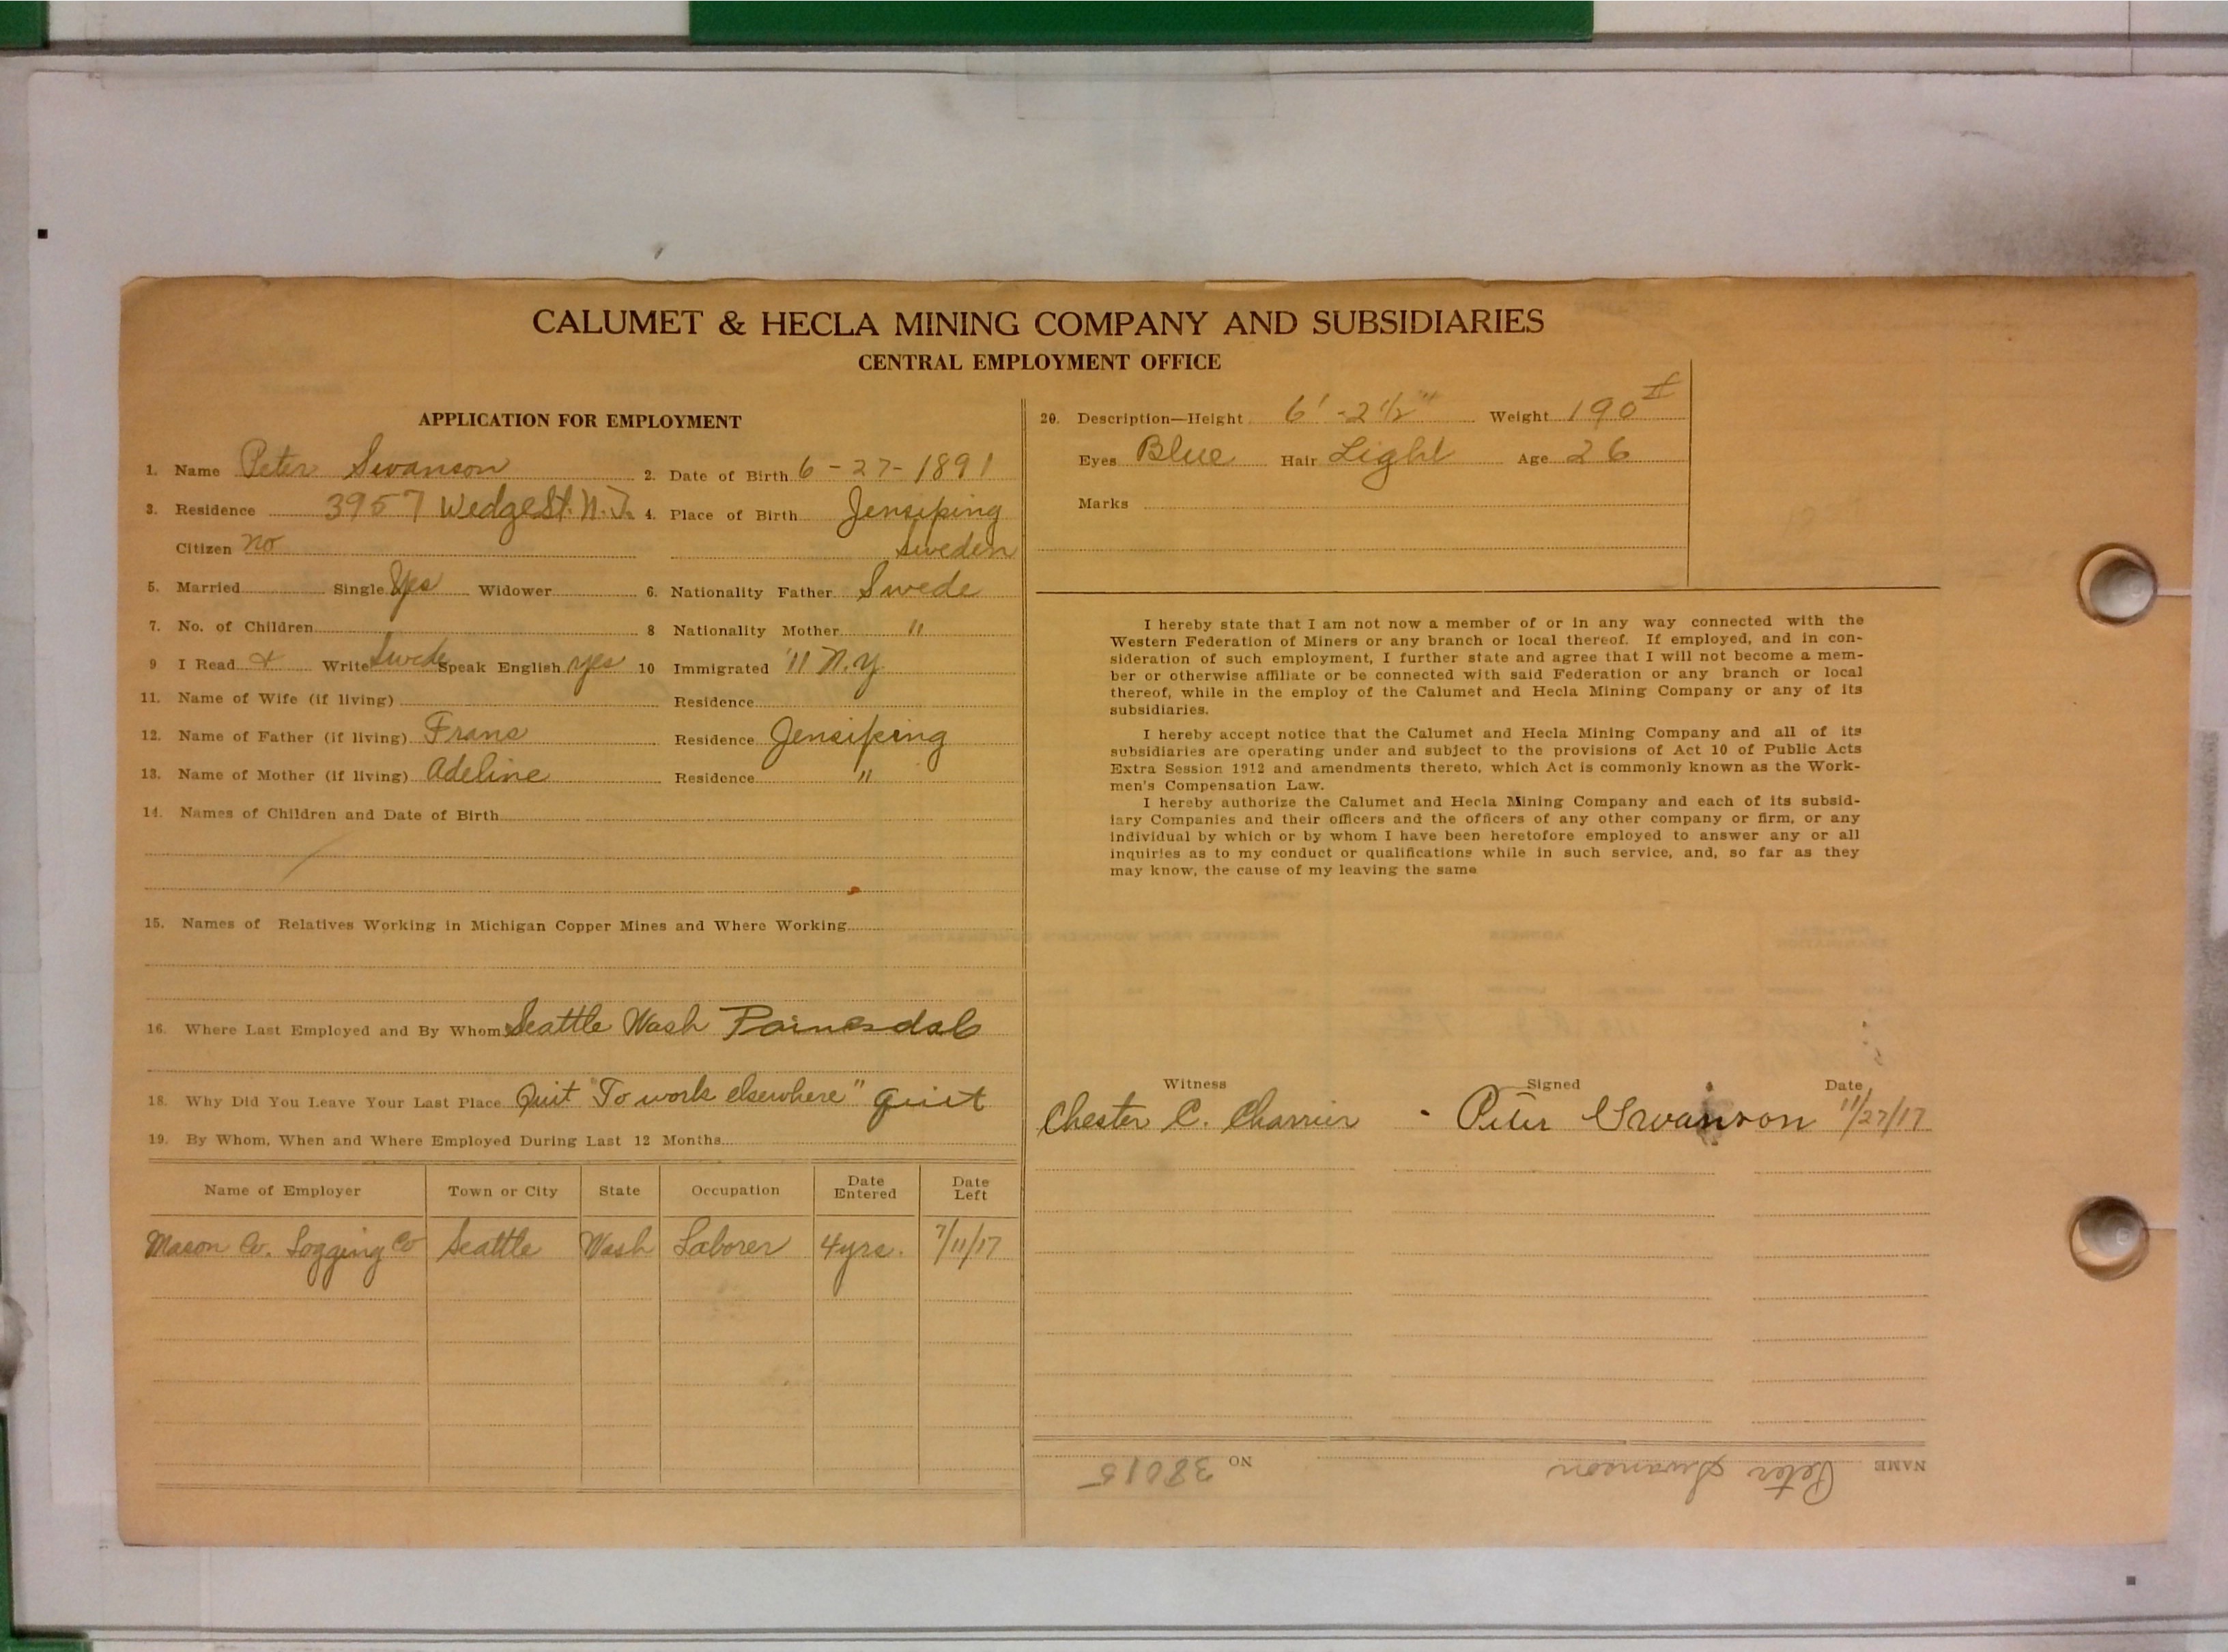 CALUMET & HECLA MINING COMPANY AND SUBSIDIARIES
CENTRAL EMPLOYMENT OFFICE
APPLICATION FOR EMPLOYMENT
1. Name Peter Swanson 2. Date of Birth 6-27-1891
3. Residence 3957 Wedge St. N.T. 4. Place of Birth Jensiping
Citizen no Sweden
5. Married Single Yes Widower 6. Nationality Father Swede
7. No. of Children 8 Nationality Mother "
9 I Read & Write Swede Speak English yes 10 Immigrated '11 N.Y
11. Name of Wife (if living) Residence
12. Name of Father (if living) Frans Residence Jensiping
13. Name of Mother (if living) Adeline Residence "
14. Names of Children and Date of Birth
15. Names of Relatives Working in Michigan Copper Mines and Where Working
16. Where Last Employed and By Whom Seattle Wash Painesdale
18. Why Did You Leave Your Last Place Quit "To work elsewhere" quit
19. By Whom, When and Where Employed During Last 12 Months
Name of Employer Town or City State Occupation Date Entered Date Left
Mason Co. Logging Co Seattle Wash Laborer 4yrs. 7/11/17
20. Description—Height 6'-2 1/2" Weight 190#
Eyes Blue Hair Light Age 26
Marks
I hereby state that I am not now a member of or in any way connected with the
Western Federation of Miners or any branch or local thereof. If employed, and in con-
sideration of such employment, I further state and agree that I will not become a mem-
ber or otherwise affiliate or be connected with said Federation or any branch or local
thereof, while in the employ of the Calumet and Hecla Mining Company or any of its
subsidiaries.
I hereby accept notice that the Calumet and Hecla Mining Company and all of its
subsidiaries are operating under and subject to the provisions of Act 10 of Public Acts
Extra Session 1912 and amendments thereto, which Act is commonly known as the Work-
men's Compensation Law.
I hereby authorize the Calumet and Hecla Mining Company and each of its subsid-
iary Companies and their officers and the officers of any other company or firm, or any
individual by which or by whom I have been heretofore employed to answer any or all
inquiries as to my conduct or qualifications while in such service, and, so far as they
may know, the cause of my leaving the same
Witness Signed Date
Chester C. Charrier Peter Swanson 11/27/17
NAME Peter Swanson NO 38015